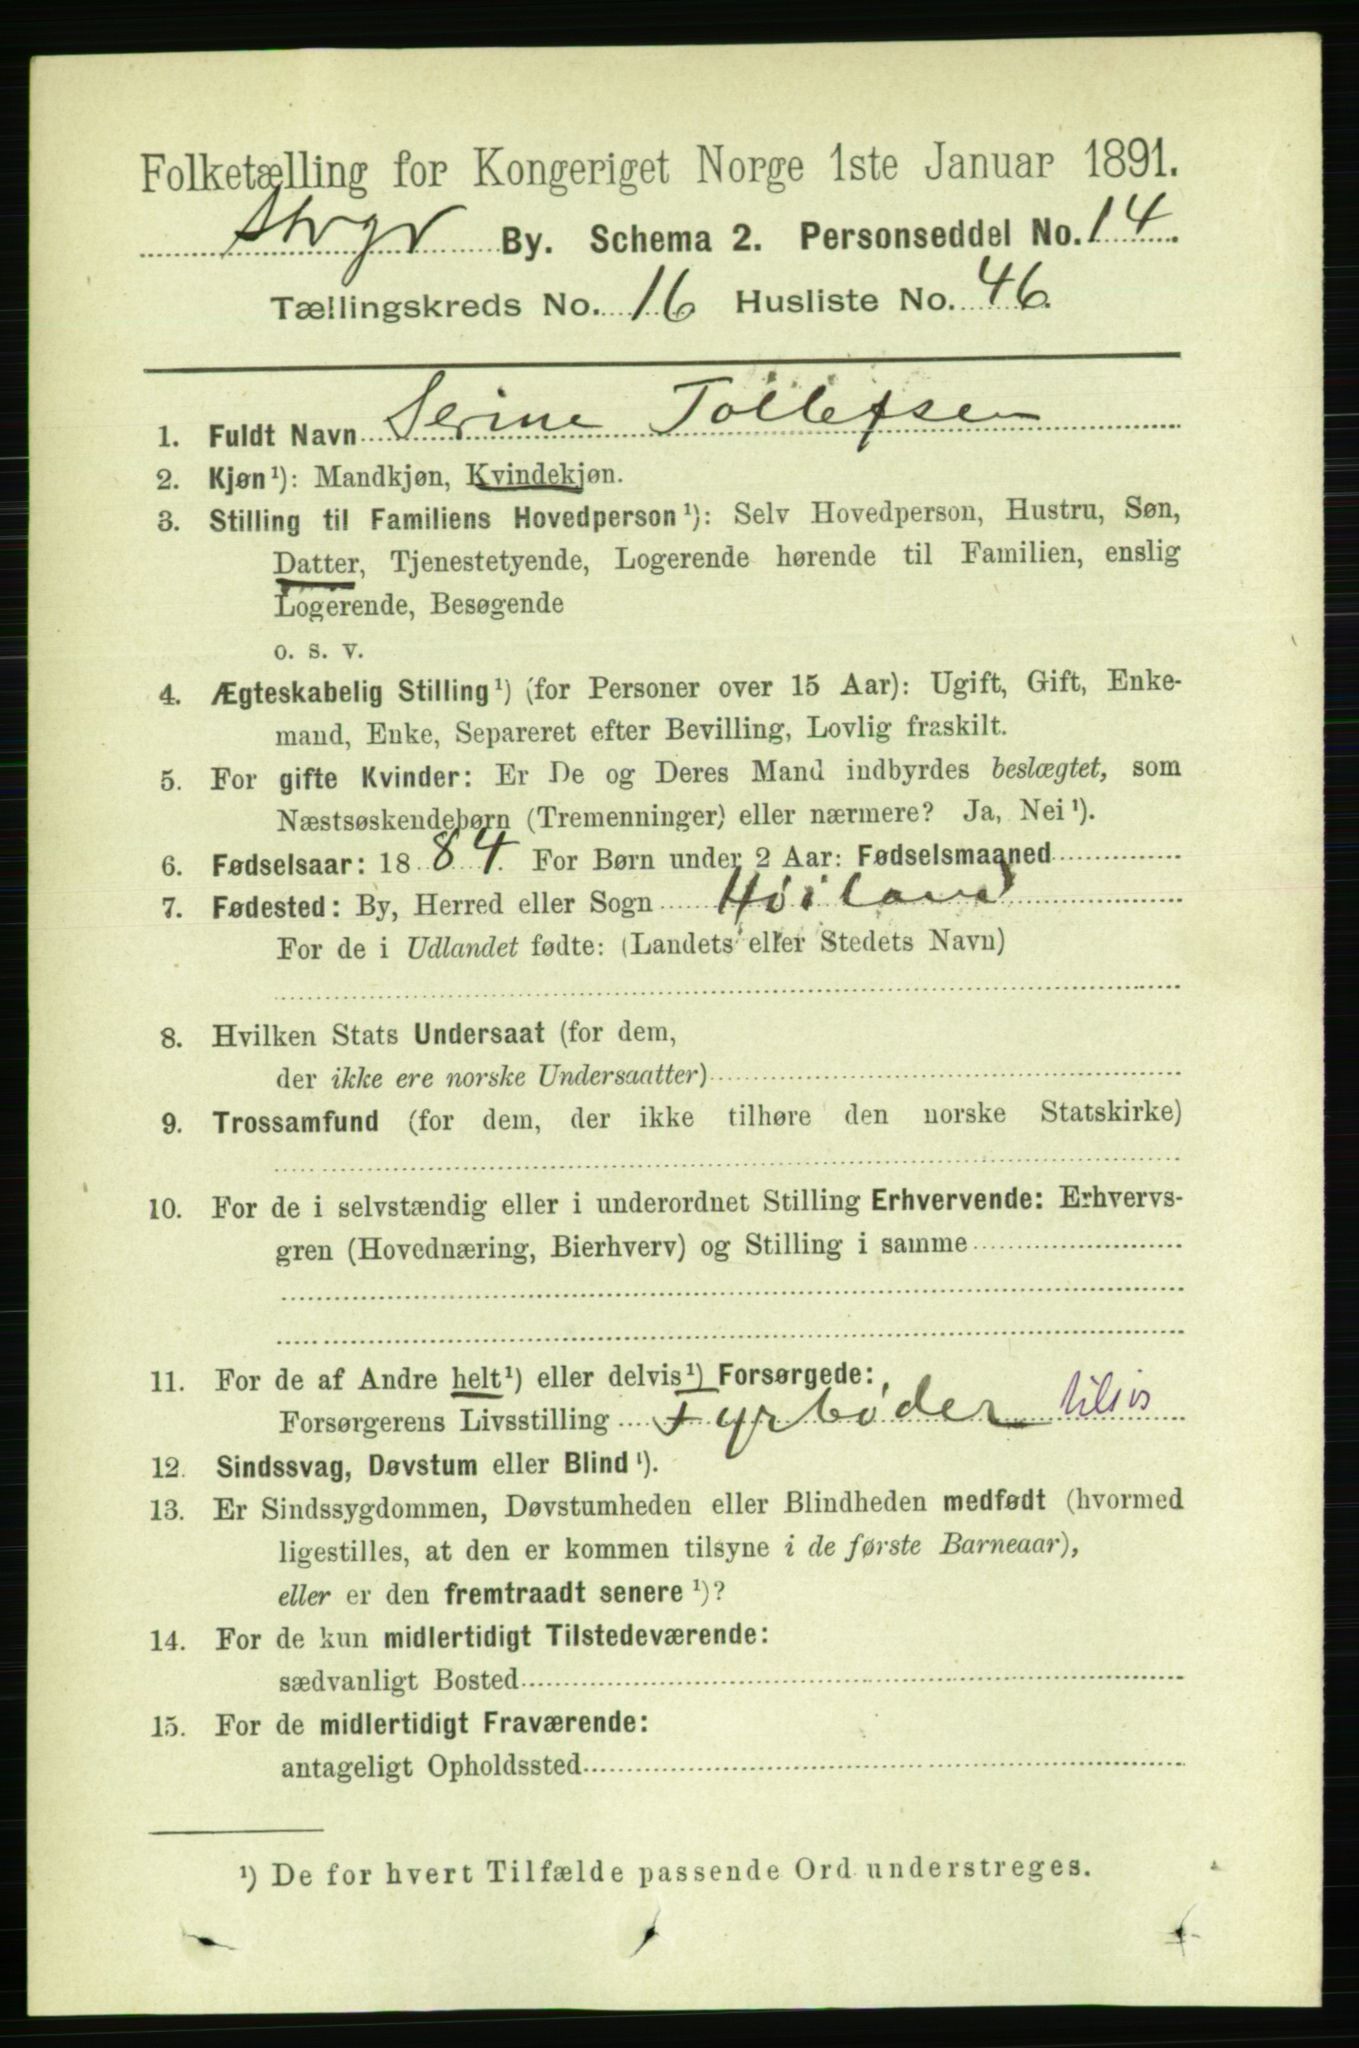 Folketælling for Kongeriget Norge 1ste Januar 1891.
By. Schema 2. Personseddel No. 14
Tællingskreds No. 16 Husliste No. 46.
1. Fuldt Navn Serine Tollefsen
2. Kjøn¹): Mandkjøn, Kvindekjøn.
3. Stilling til Familiens Hovedperson¹): Selv Hovedperson, Hustru, Søn,
Datter, Tjenestetyende, Logerende hørende til Familien, enslig
Logerende, Besøgende
o. s. v.
4. Ægteskabelig Stilling¹) (for Personer over 15 Aar): Ugift, Gift, Enke-
mand, Enke, Separeret efter Bevilling, Lovlig fraskilt.
5. For gifte Kvinder: Er De og Deres Mand indbyrdes beslægtet, som
Næstsøskendebørn (Tremenninger) eller nærmere? Ja, Nei¹).
6. Fødselsaar: 1884. For Børn under 2 Aar: Fødselsmaaned
7. Fødested: By, Herred eller Sogn Høiland
For de i Udlandet fødte: (Landets eller Stedets Navn)
8. Hvilken Stats Undersaat (for dem,
der ikke ere norske Undersaatter)
9. Trossamfund (for dem, der ikke tilhøre den norske Statskirke)
10. For de i selvstændig eller i underordnet Stilling Erhvervende: Erhvervs-
gren (Hovednæring, Bierhverv) og Stilling i samme
11. For de af Andre helt¹) eller delvis¹) Forsørgede:
Forsørgerens Livsstilling Fyrbøder tilsjs
12. Sindssvag, Døvstum eller Blind¹).
13. Er Sindssygdommen, Døvstumheden eller Blindheden medfødt (hvormed
ligestilles, at den er kommen tilsyne i de første Barneaar),
eller er den fremtraadt senere¹)?
14. For de kun midlertidigt Tilstedeværende:
sædvanligt Bosted
15. For de midlertidigt Fraværende:
antageligt Opholdssted
¹) De for hvert Tilfælde passende Ord understreges.